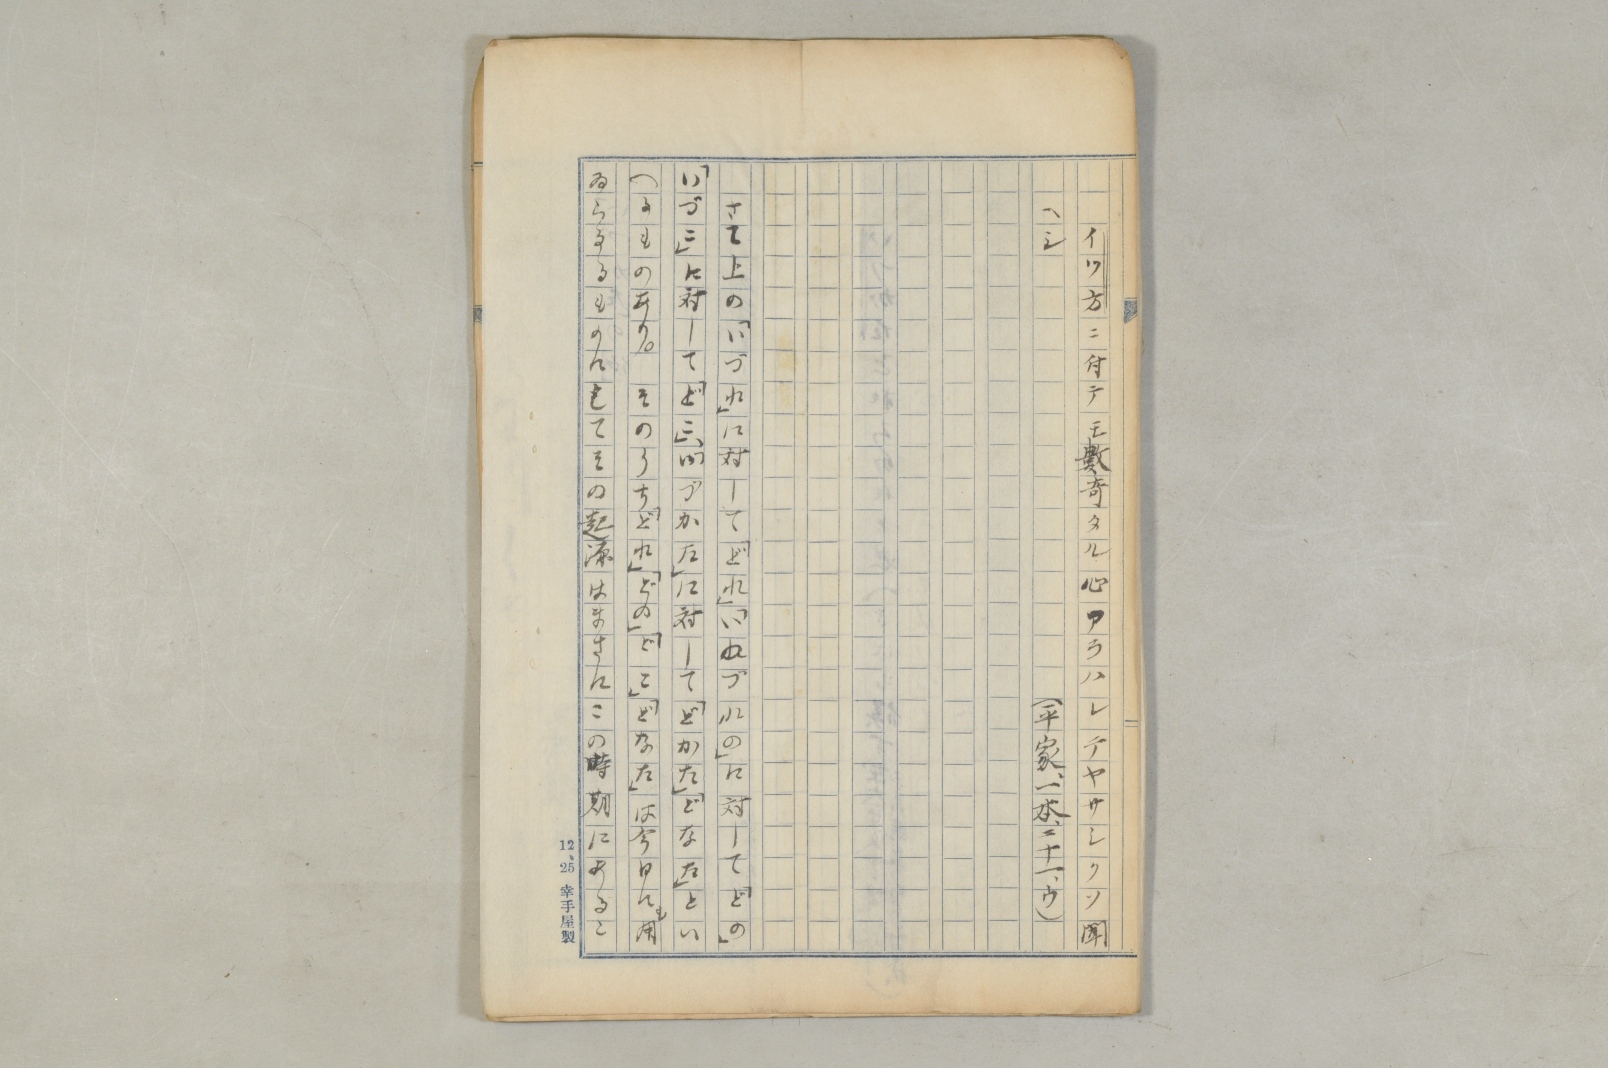 イツ方ニ付テモ數奇タル心アラハレテヤサシクソ聞
ヘシ
(平家、一本、二十一、ウ)
さて上の「いづれ」に対して「どれ」「いづれの」に対して「どの」
「いづこ」に対して「どこ」、「いづかた」に対して「どかた」「どなた」とい
へるものあり。そのうち「どれ」「どの」「どこ」「どなた」は今日にも用
ゐらるるものにしてその起源はまさにこの時期にあるこ
12、25 幸手屋製